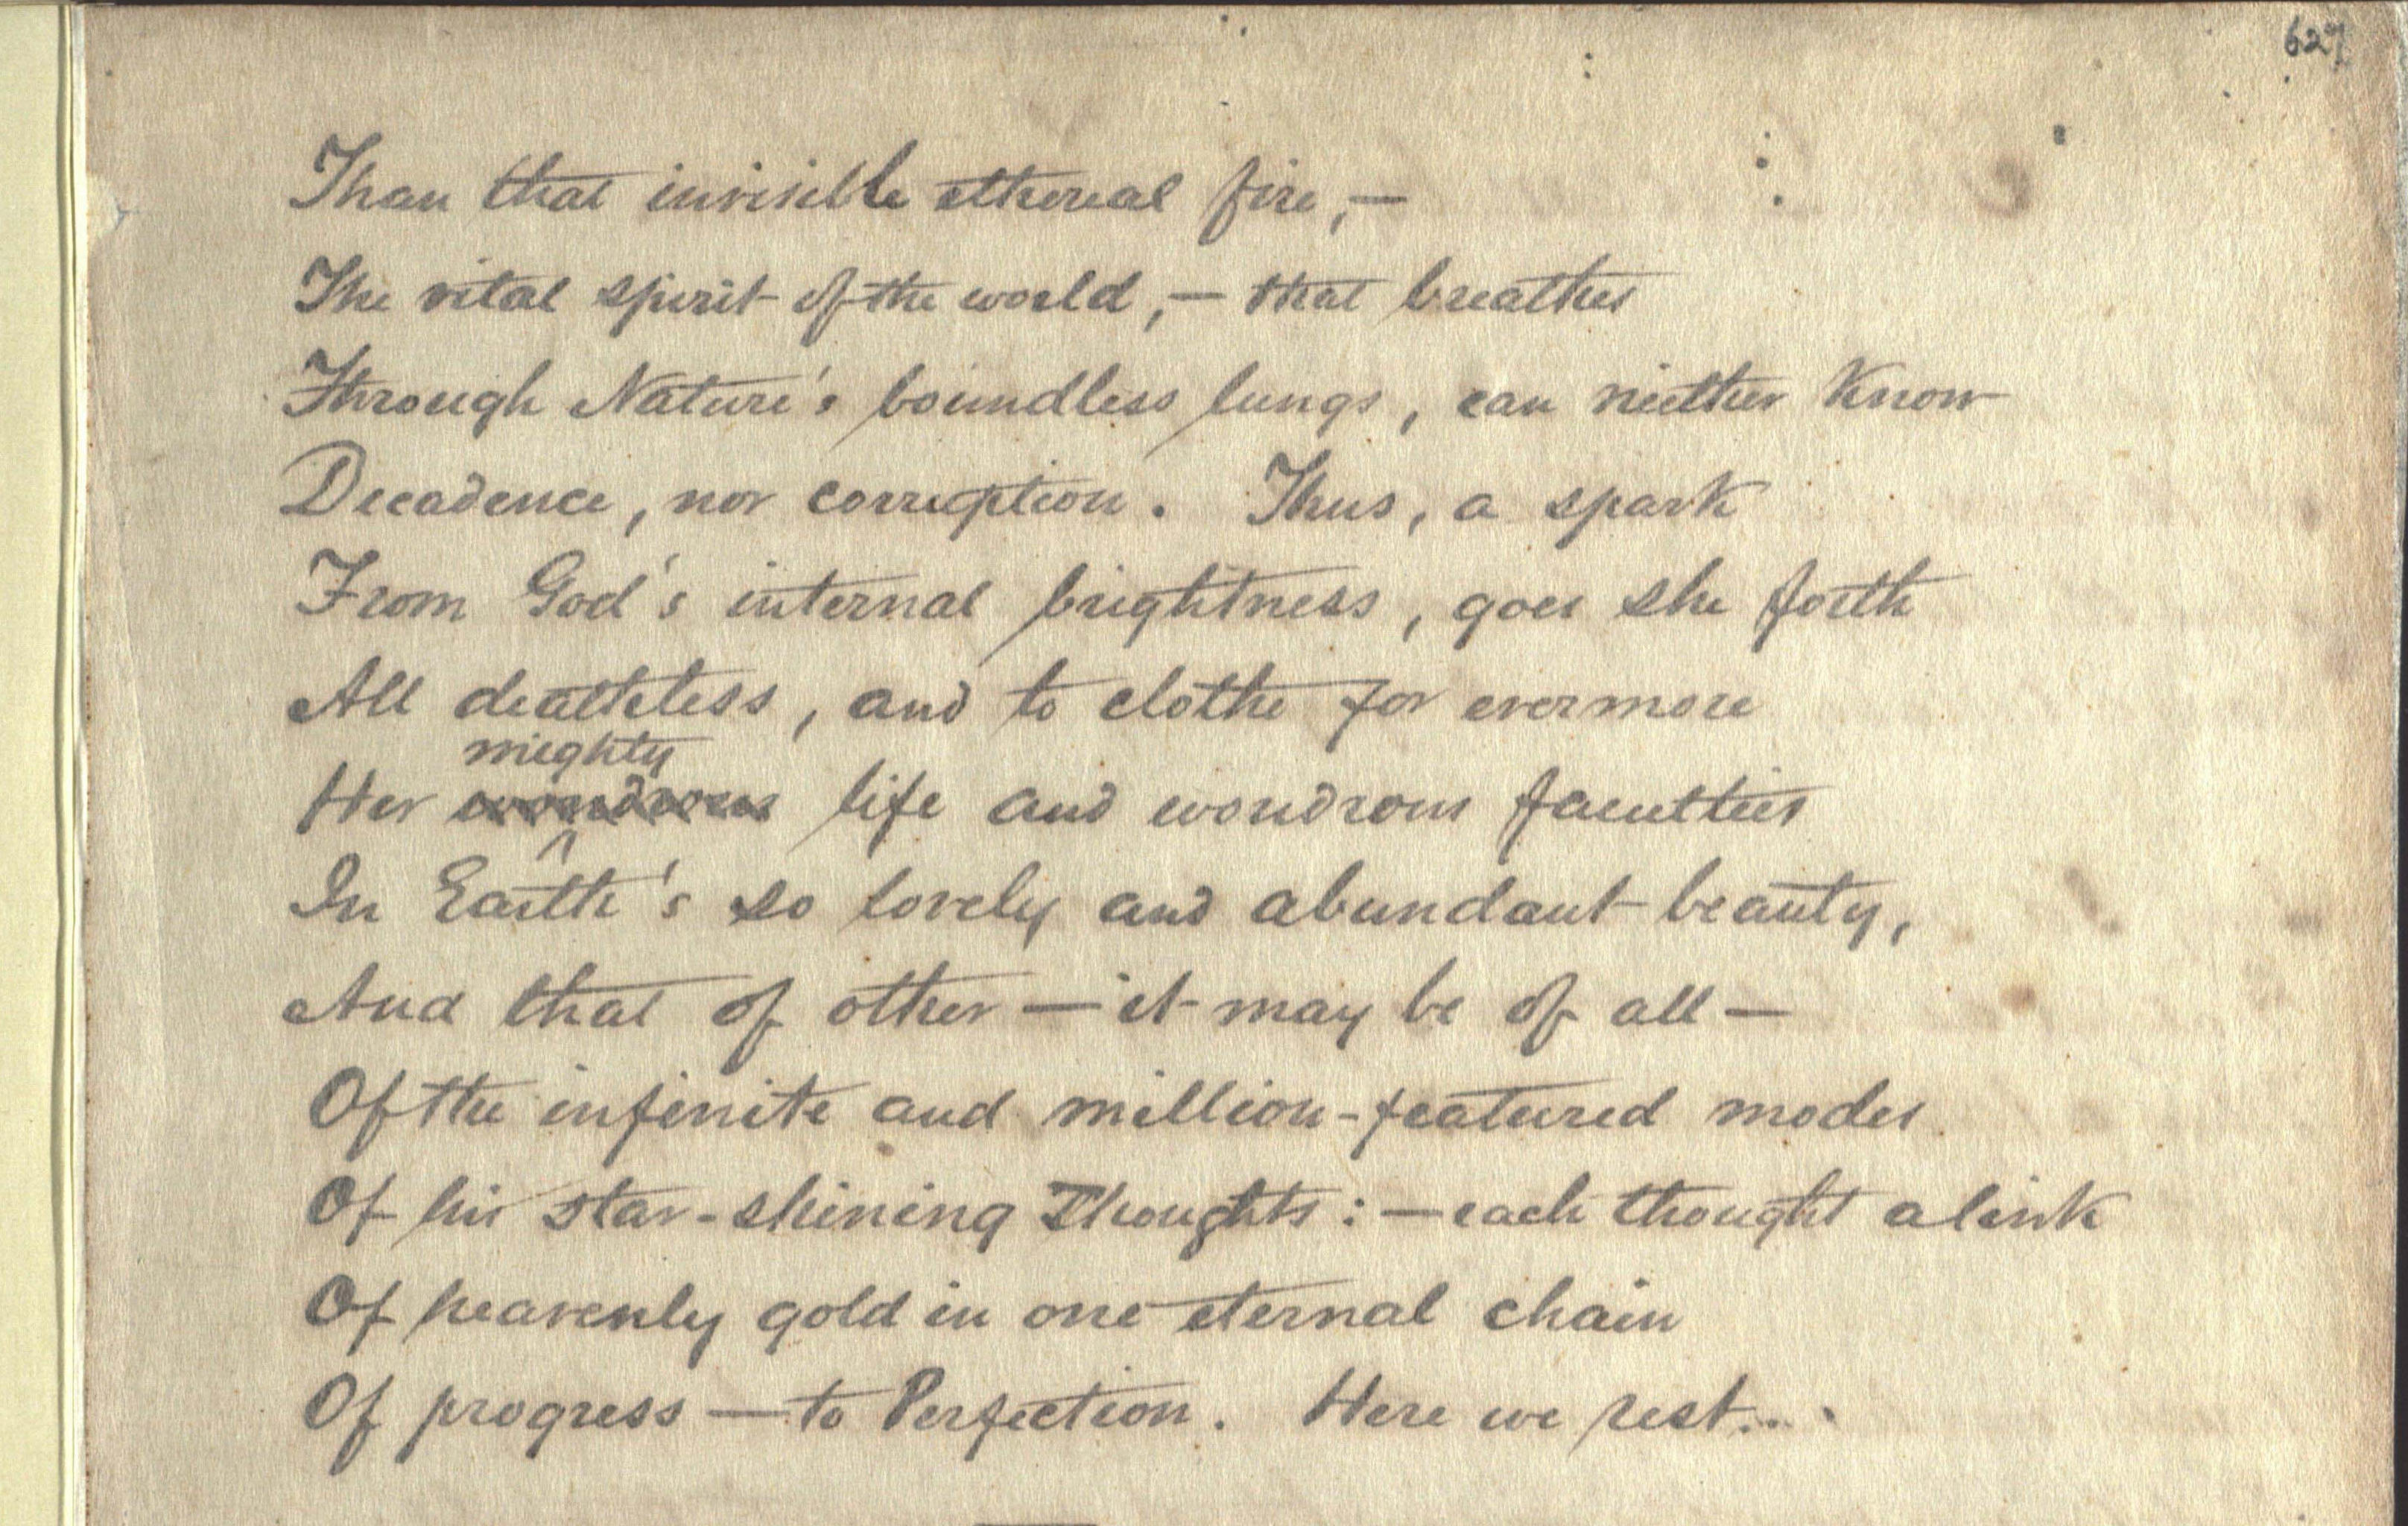 627
Than that invisible ethereal fire, —
The vital spirit of the world, — that breathes
Through Nature's boundless lungs, can neither Know
Decadence, nor corruption. Thus, a spark
From God's internal brightness, goes she forth
All deathless, and to clothe for evermore
mighty
Her wondrous life and wondrous faculties
In Earth's so lovely and abundant beauty,
And that of other — it may be of all —
Of the infinite and million-featured modes
Of his star-shining Thoughts: — each thought a link
Of heavenly gold in one eternal chain
Of progress — to Perfection. Here we rest...